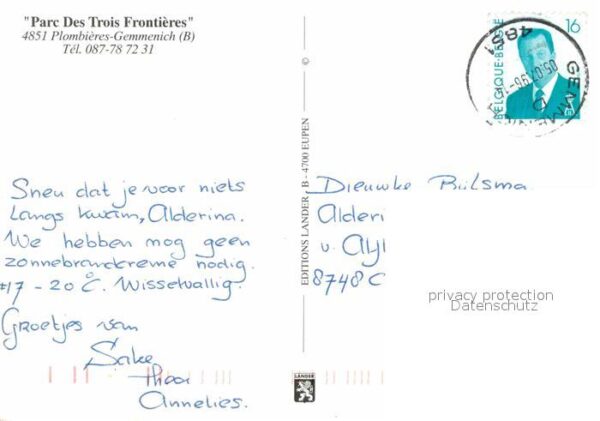 "Parc Des Trois Frontières"
4851 Plombières-Gemmenich (B)
Tél. 087-78 72 31
Sneu dat je voor niets
langs kwam, Alderina.
We hebben nog geen
zonnebrandcreme nodig.
17 - 20°C. Wisselvallig.
Groetjes van
Sake
Annelies.
©
EDITIONS LANDER - B - 4700 EUPEN
LANDER
BELGIQUE·BELGIË
16
4851
05.07.96
Dieuwke Bijlsma
Alderi
v. Ayl
8748 C
privacy protection
Datenschutz